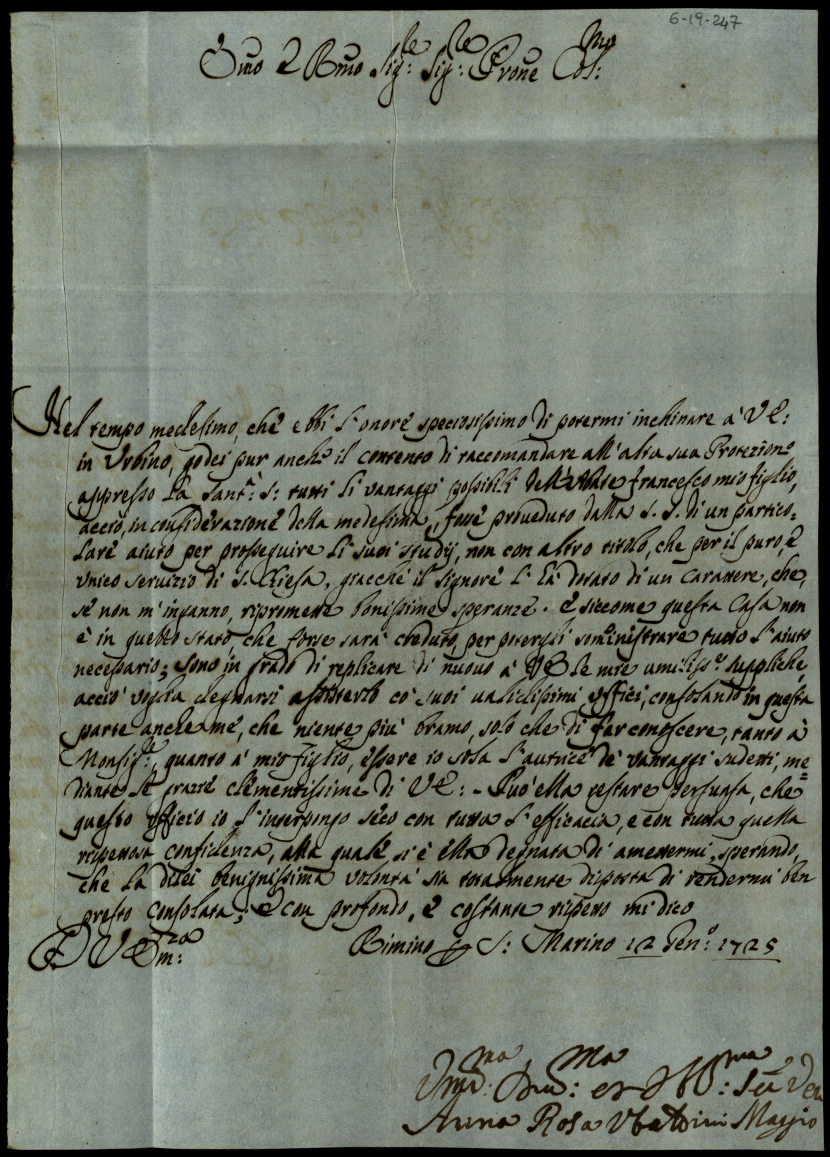 6-19-247
Emo e Rmo Sig:re Sig:re Prone Col:mo
Nel tempo medesimo, che ebbi l'onore speciosissimo di potermi inchinare à V E:
in Urbino, godei pur anche il contento di raccomandare all'alta sua Protezione
appresso la Sant:à S: tutti li vantaggi possibili dell'Abate Francesco mio figlio,
acciò, in considerazione della medesima, fosse proveduto dalla S. S. di un partico=
lare aiuto per proseguire li suoi studij, non con altro titolo, che per il puro, è
unico servizio di S. Chiesa, giacchè il Signore l'hà dotato di un carattere, che,
sè non m'inganno, ripromette bonissime speranze. E siccome questa Casa non
è in quello stato che forse sarà creduto, per potergli somministrare tutto l'aiuto
necessario; sono in grado di replicare di nuovo à V E le mie umiliss:e suppliche,
acciò voglia degnarsi assisterlo co' suoi validissimi uffici, consolando in questa
parte anche mè, che niente più bramo, solo che di far conoscere, tanto à
Monsig:re, quanto à mio figlio, essere io sola l'autrice de' vantaggi sudetti, me=
diante le grazie clementissime di V E: - Può ella restare persuasa, che
questo officio io l'interpongo seco con tutta l'efficacia, e con tutta quella
rispettosa confidenza, alla quale si è ella degnata di amettermi, sperando,
che la di lei benignissima volontà sia totalmente disposta di rendermi ben
presto consolata; è con profondo, è costante rispetto mi dico
D V Em:za Rimino p S: Marino 12 Gen:o 1725
Um:ma Dev:ma et Obb:ma Ser:a Vera
Anna Rosa Ubaldini Maggio